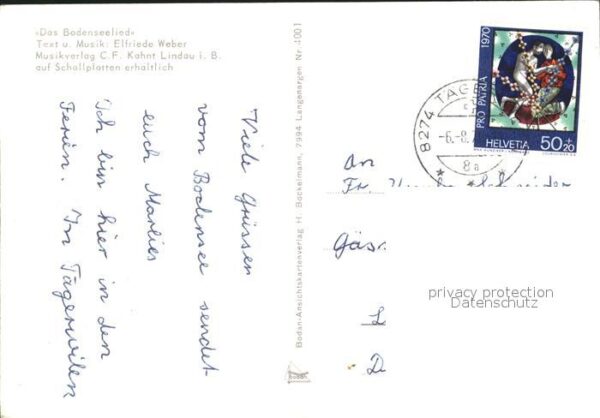 «Das Bodenseelied»
Text u. Musik: Elfriede Weber
Musikverlag C.F. Kahnt Lindau i. B.
auf Schallplatten erhältlich
Viele Grüssen
vom Bodensee sendet
euch Marlies
Ich bin hier in den
Ferien. In Tägerwilen
Bodan-Ansichtskartenverlag H. Bockelmann, 7994 Langenargen Nr. 4001
PRO PATRIA 1970
HELVETIA 50+20
8274 TÄGE
-6.-8.
8a
An
Fr.
Gäs
L
D
privacy protection
Datenschutz